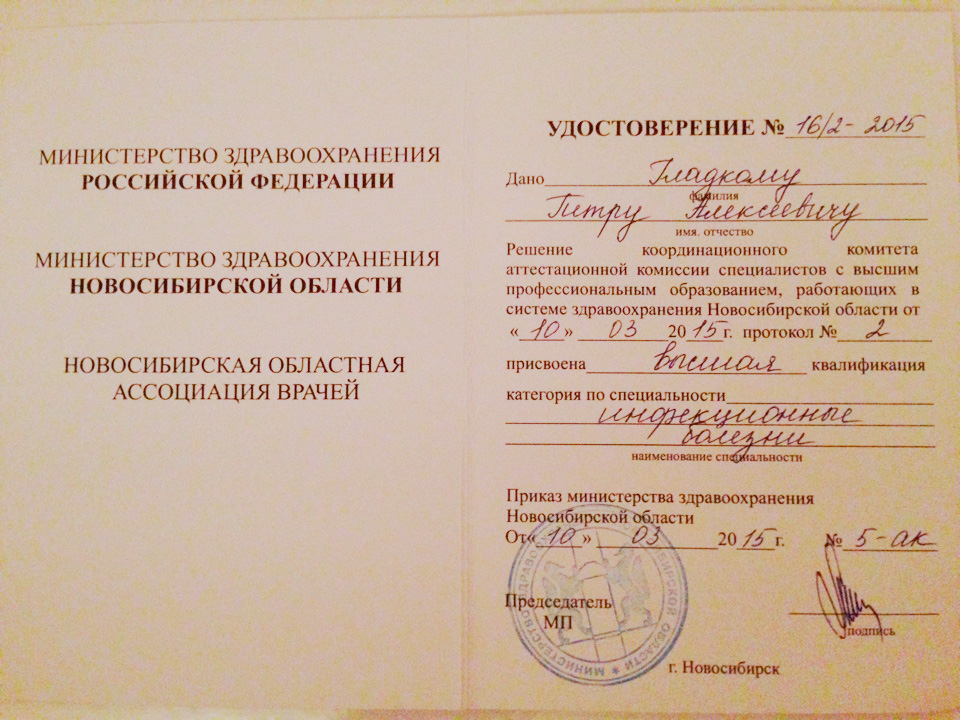 МИНИСТЕРСТВО ЗДРАВООХРАНЕНИЯ
РОССИЙСКОЙ ФЕДЕРАЦИИ
МИНИСТЕРСТВО ЗДРАВООХРАНЕНИЯ
НОВОСИБИРСКОЙ ОБЛАСТИ
НОВОСИБИРСКАЯ ОБЛАСТНАЯ
АССОЦИАЦИЯ ВРАЧЕЙ
УДОСТОВЕРЕНИЕ № 16/2- 2015
Дано Гладкому
фамилия
Петру Алексеевичу
имя. отчество
Решение координационного комитета
аттестационной комиссии специалистов с высшим
профессиональным образованием, работающих в
системе здравоохранения Новосибирской области от
«10» 03 2015г. протокол № 2
присвоена высшая квалификация
категория по специальности
инфекционные
болезни
наименование специальности
Приказ министерства здравоохранения
Новосибирской области
От«10» 03 2015г. № 5-ак
Председатель
МП
подпись
г. Новосибирск
МИНИСТЕРСТВО ЗДРАВООХРАНЕНИЯ НОВОСИБИРСКОЙ ОБЛАСТИ